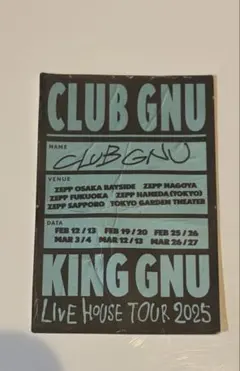 CLUB GNU
NAME
CLUB GNU
VENUE
ZEPP OSAKA BAYSIDE ZEPP NAGOYA
ZEPP FUKUOKA ZEPP HANEDA(TOKYO)
ZEPP SAPPORO TOKYO GARDEN THEATER
DATA
FEB 12/13 FEB 19/20 FEB 25/26
MAR 3/4 MAR 12/13 MAR 26/27
KING GNU
LIVE HOUSE TOUR 2025